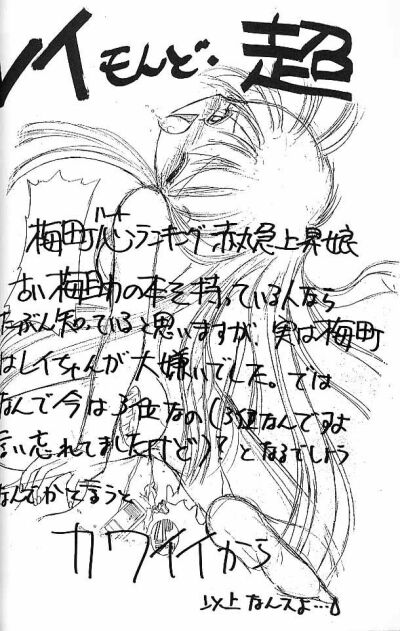 レイモンド・超
梅町心ランキング赤丸急上昇娘
古い梅町の本を持っている人なら
たぶん知っていると思いますが、実は梅町
はレイちゃんが大嫌いでした。では
なんで今は3位なの(3位なんですよ
言い忘れてましたけど)?となるでしょう
なんでかと言うと
カワイイから
以上なんスよ…。